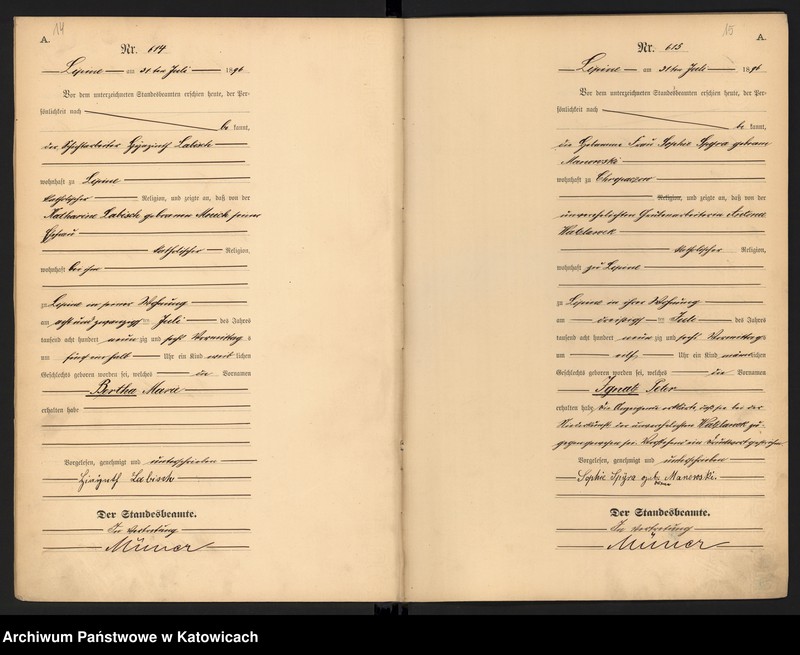 14
A.
Nr. 614
Lipine am 31ten Juli 1896
Vor dem unterzeichneten Standesbeamten erschien heute, der Per-
sönlichkeit nach
be kannt,
der Labisch
wohnhaft zu Lipine
katholischer Religion, und zeigte an, daß von der
Katharina Labisch geborenen seiner
Ehefrau
katholischer Religion,
wohnhaft bei ihm
zu Lipine in seiner Wohnung
am acht und zwanzigsten Juli des Jahres
tausend acht hundert neun zig und sechs Vormittags
um fünf ein halb Uhr ein Kind weib lichen
Geschlechts geboren worden sei, welches die Vornamen
Bertha Marie
erhalten habe
Vorgelesen, genehmigt und unterschrieben
Labisch
Der Standesbeamte.
In Vertretung
15
A.
Nr. 615
Lipine am 31ten Juli 1896
Vor dem unterzeichneten Standesbeamten erschien heute, der Per-
sönlichkeit nach
be kannt,
die Hebamme Frau Sophie Spyra geborene
Manowski
wohnhaft zu Chropaczow
Religion, und zeigte an, daß von der
unverehelichten Grubenarbeiterin
katholischer Religion,
wohnhaft zu Lipine
zu Lipine in ihrer Wohnung
am dreißigsten Juli des Jahres
tausend acht hundert neun zig und sechs Vormittags
um elf Uhr ein Kind männ lichen
Geschlechts geboren worden sei, welches die Vornamen
Ignatz Peter
erhalten habe. Die Anzeigende erklärte, daß sie bei der
Niederkunft der unverehelichten zu-
gegen gewesen sei. Vorstehend ein Druckwort gestrichen
Vorgelesen, genehmigt und unterschrieben
Sophie Spyra Manowski.
Der Standesbeamte.
In Vertretung
Archiwum Państwowe w Katowicach